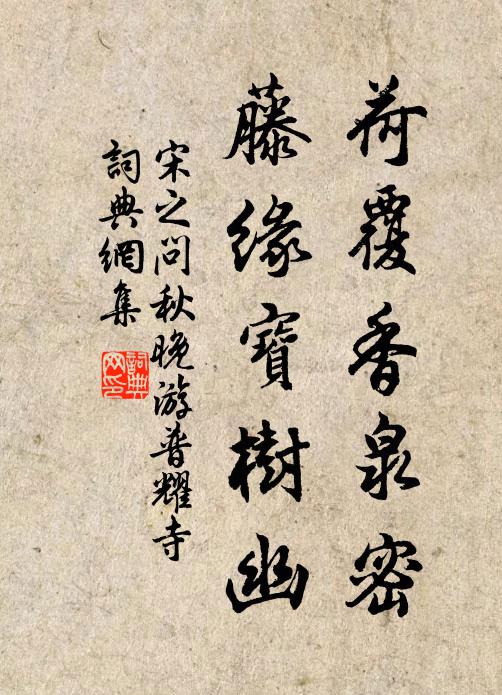 荷覆香泉密
藤緣寶樹幽
宋之问秋晚游普耀寺
詞典網集
詞典网印